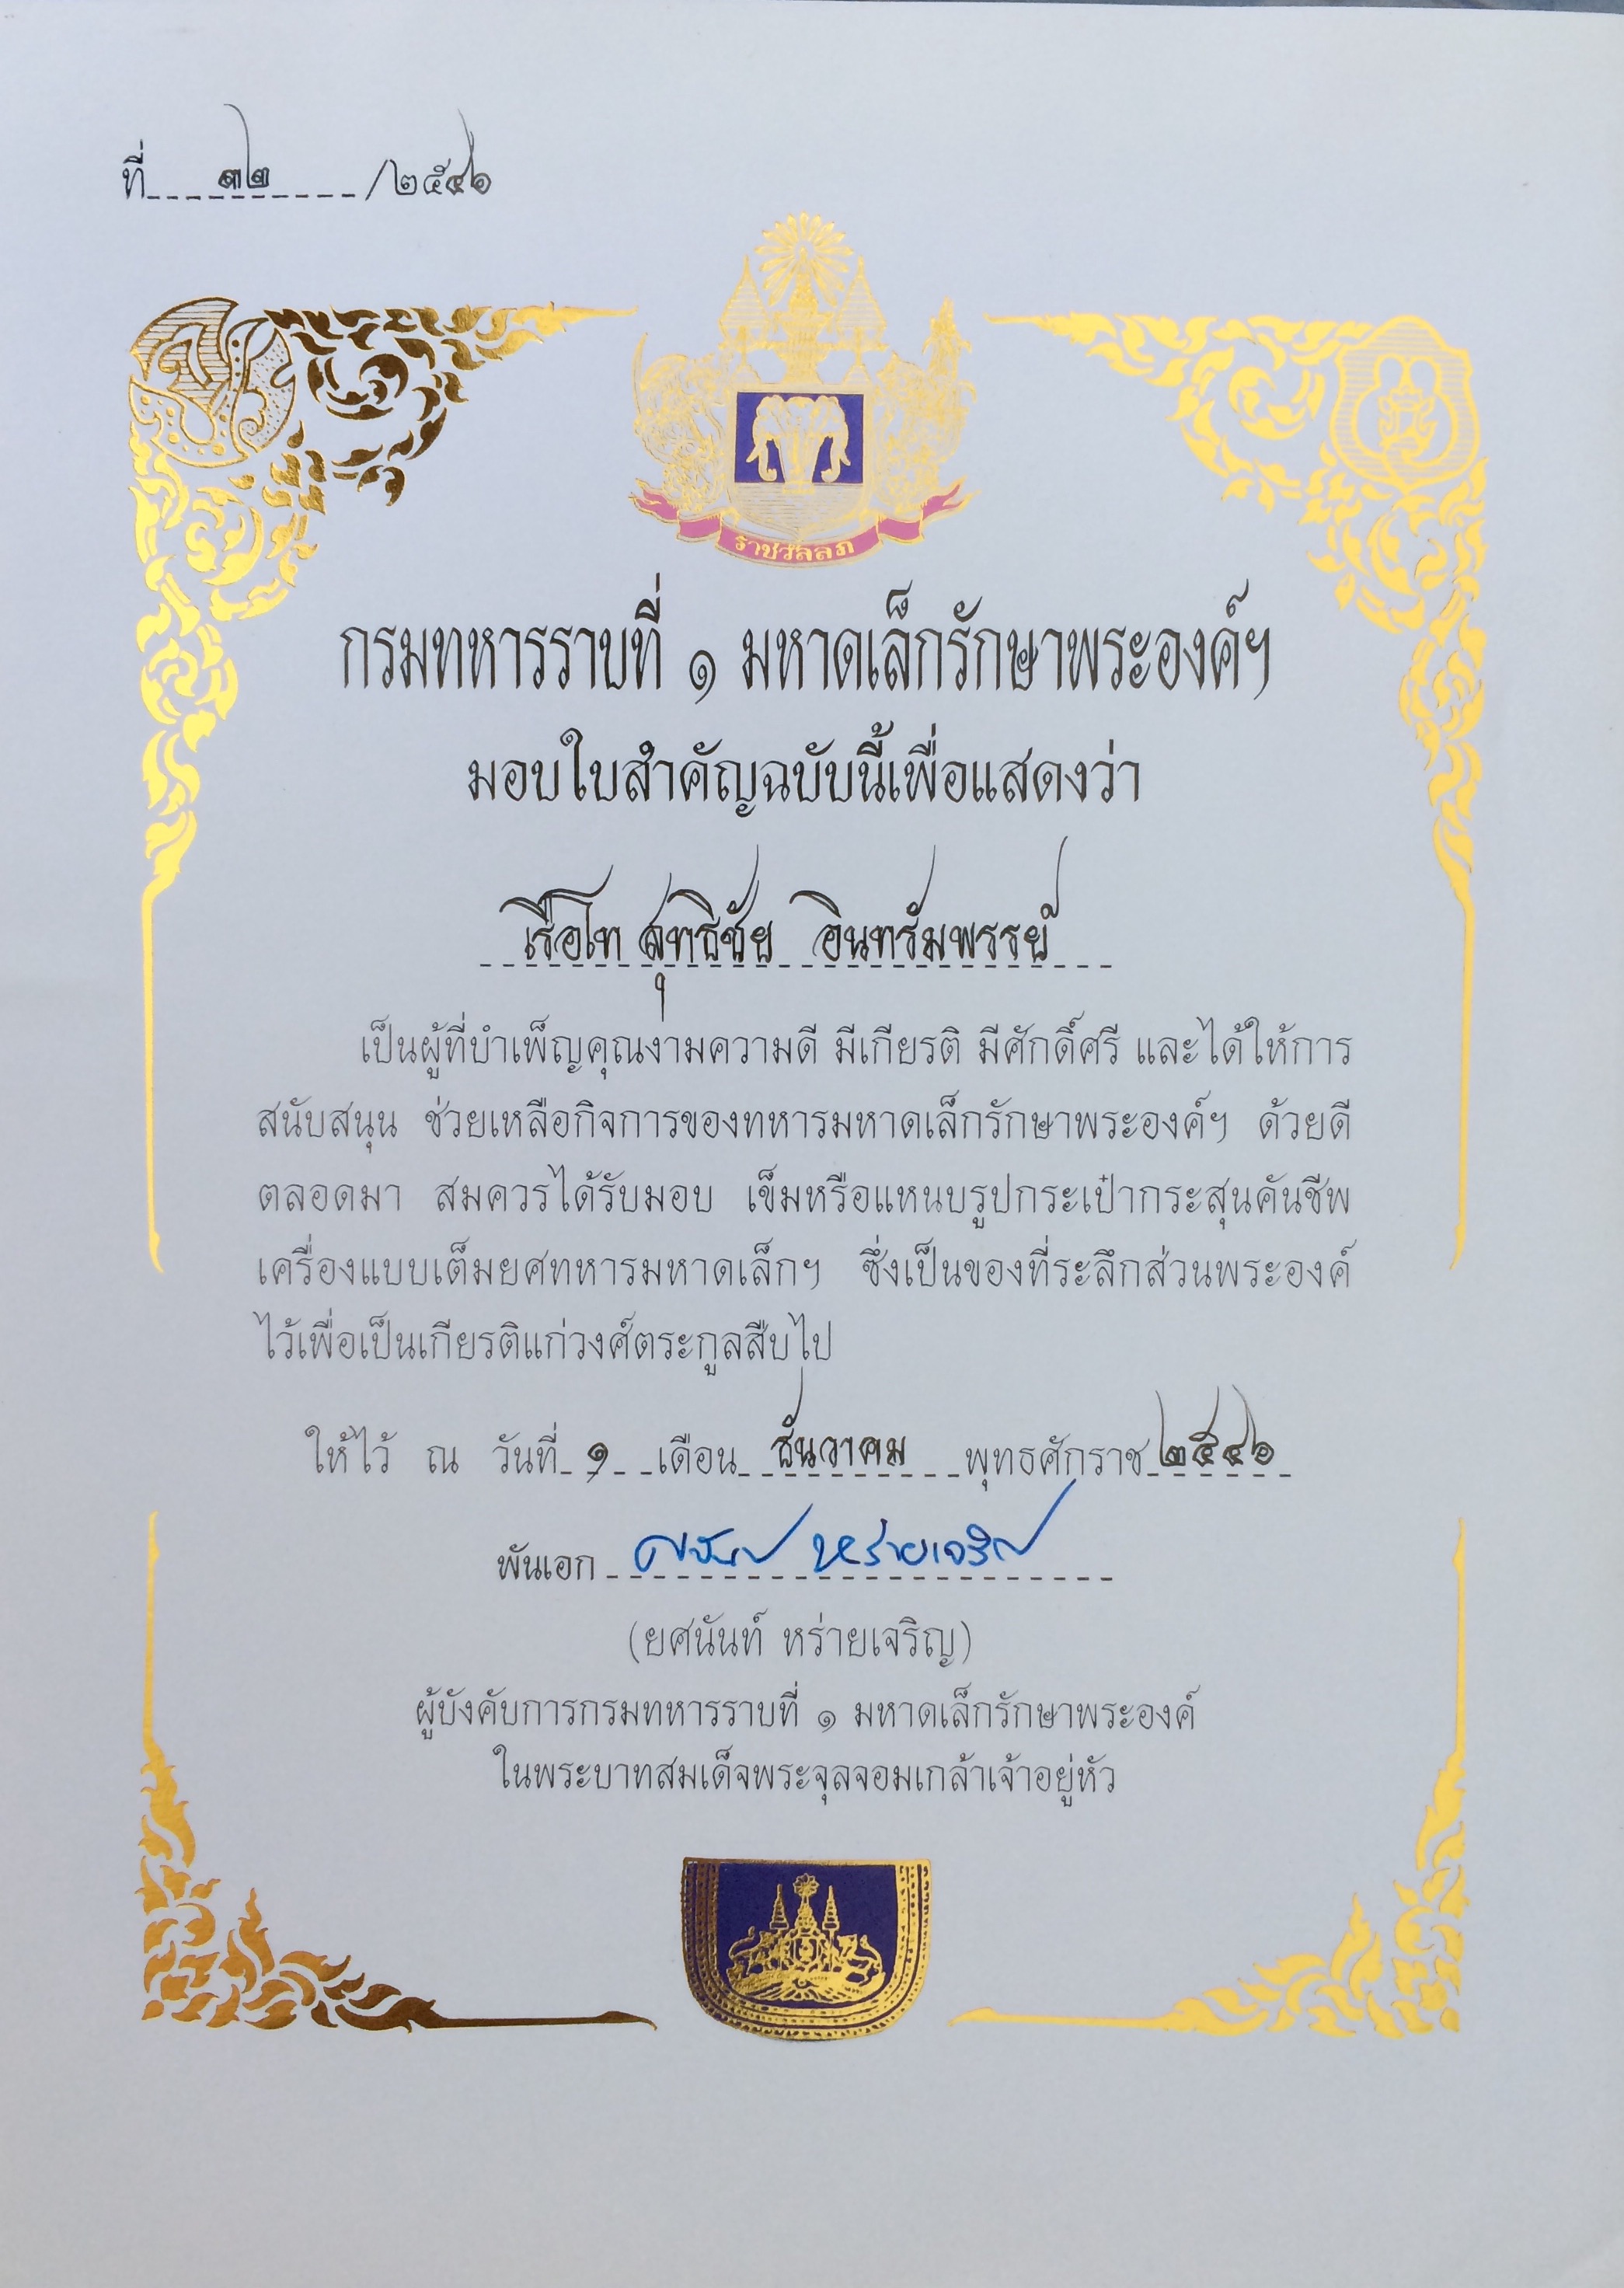 ที่ ๓๒ /๒๕๔๖
ราชวัลลภ
กรมทหารราบที่ ๑ มหาดเล็กรักษาพระองค์ฯ
มอบใบสำคัญฉบับนี้เพื่อแสดงว่า
เรือโท สุทธิชัย อินทรัมพรรย์
เป็นผู้ที่บำเพ็ญคุณงามความดี มีเกียรติ มีศักดิ์ศรี และได้ให้การ
สนับสนุน ช่วยเหลือกิจการของทหารมหาดเล็กรักษาพระองค์ฯ ด้วยดี
ตลอดมา สมควรได้รับมอบ เข็มหรือแหนบรูปกระเป๋ากระสุนคันชีพ
เครื่องแบบเต็มยศทหารมหาดเล็กฯ ซึ่งเป็นของที่ระลึกส่วนพระองค์
ไว้เพื่อเป็นเกียรติแก่วงศ์ตระกูลสืบไป
ให้ไว้ ณ วันที่ ๑ เดือน ธันวาคม พุทธศักราช ๒๕๔๖
พันเอก ยศนันท์ หร่ายเจริญ
(ยศนันท์ หร่ายเจริญ)
ผู้บังคับการกรมทหารราบที่ ๑ มหาดเล็กรักษาพระองค์
ในพระบาทสมเด็จพระจุลจอมเกล้าเจ้าอยู่หัว